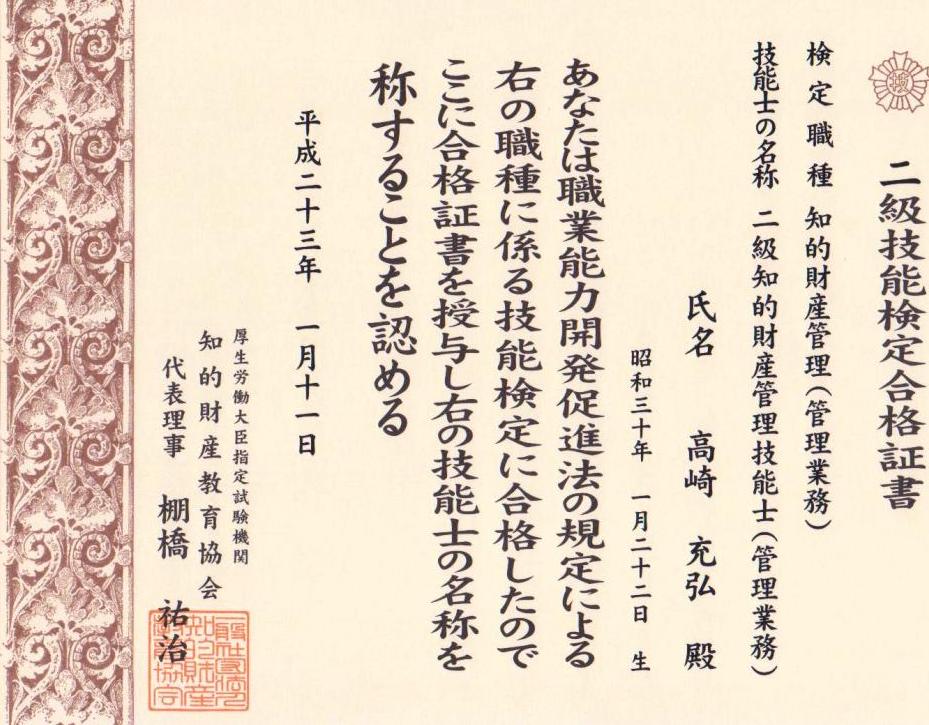 二級技能検定合格証書
検定職種 知的財産管理(管理業務)
技能士の名称 二級知的財産管理技能士(管理業務)
氏名 高崎 充弘 殿
昭和三十年 一月二十二日 生
あなたは職業能力開発促進法の規定による
右の職種に係る技能検定に合格したので
ここに合格証書を授与し右の技能士の名称を
称することを認める
平成二十三年 一月十一日
厚生労働大臣指定試験機関
知的財産教育協会
代表理事 棚橋 祐治